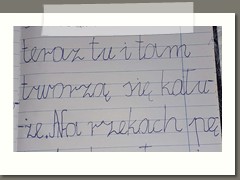 teraz tu i tam
tworzą się kału-
-że. Na rzekach pę